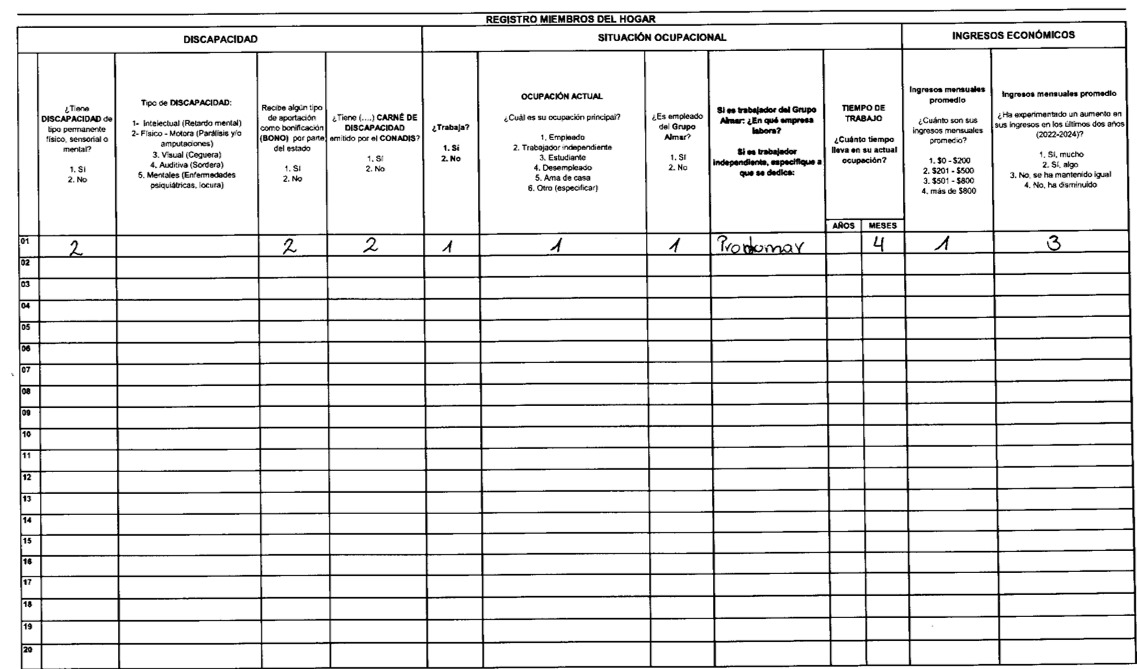 REGISTRO MIEMBROS DEL HOGAR
DISCAPACIDAD
SITUACIÓN OCUPACIONAL
INGRESOS ECONÓMICOS
¿Tiene
DISCAPACIDAD de
tipo permanente
físico, sensorial o
mental?
1. SI
2. No
Tipo de DISCAPACIDAD:
1- Intelectual (Retardo mental)
2- Físico - Motora (Parálisis y/o
amputaciones)
3. Visual (Ceguera)
4. Auditiva (Sordera)
5. Mentales (Enfermedades
psiquiátricas, locura)
Recibe algún tipo
de aportación
como bonificación
(BONO) por parte
del estado
1. SI
2. No
¿Tiene (....) CARNÉ DE
DISCAPACIDAD
emitido por el CONADIS?
1. SI
2. No
¿Trabaja?
1. Si
2. No
OCUPACIÓN ACTUAL
¿Cuál es su ocupación principal?
1. Empleado
2. Trabajador independiente
3. Estudiante
4. Desempleado
5. Ama de casa
6. Otro (especificar)
¿Es empleado
del Grupo
Almar?
1. SI
2. No
Si es trabajador del Grupo
Almar: ¿En qué empresa
labora?
Si es trabajador
independiente, especifique a
que se dedica:
TIEMPO DE
TRABAJO
¿Cuánto tiempo
lleva en su actual
ocupación?
AÑOS MESES
Ingresos mensuales
promedio
¿Cuánto son sus
ingresos mensuales
promedio?
1. $0 - $200
2. $201 - $500
3. $501 - $800
4. más de $800
Ingresos mensuales promedio
¿Ha experimentado un aumento en
sus ingresos en los últimos dos años
(2022-2024)?
1. SI, mucho
2. SI, algo
3. No, se ha mantenido igual
4. No, ha disminuido
01 2 2 2 1 1 1 4 1 3
02
03
04
05
06
07
08
09
10
11
12
13
14
15
16
17
18
19
20